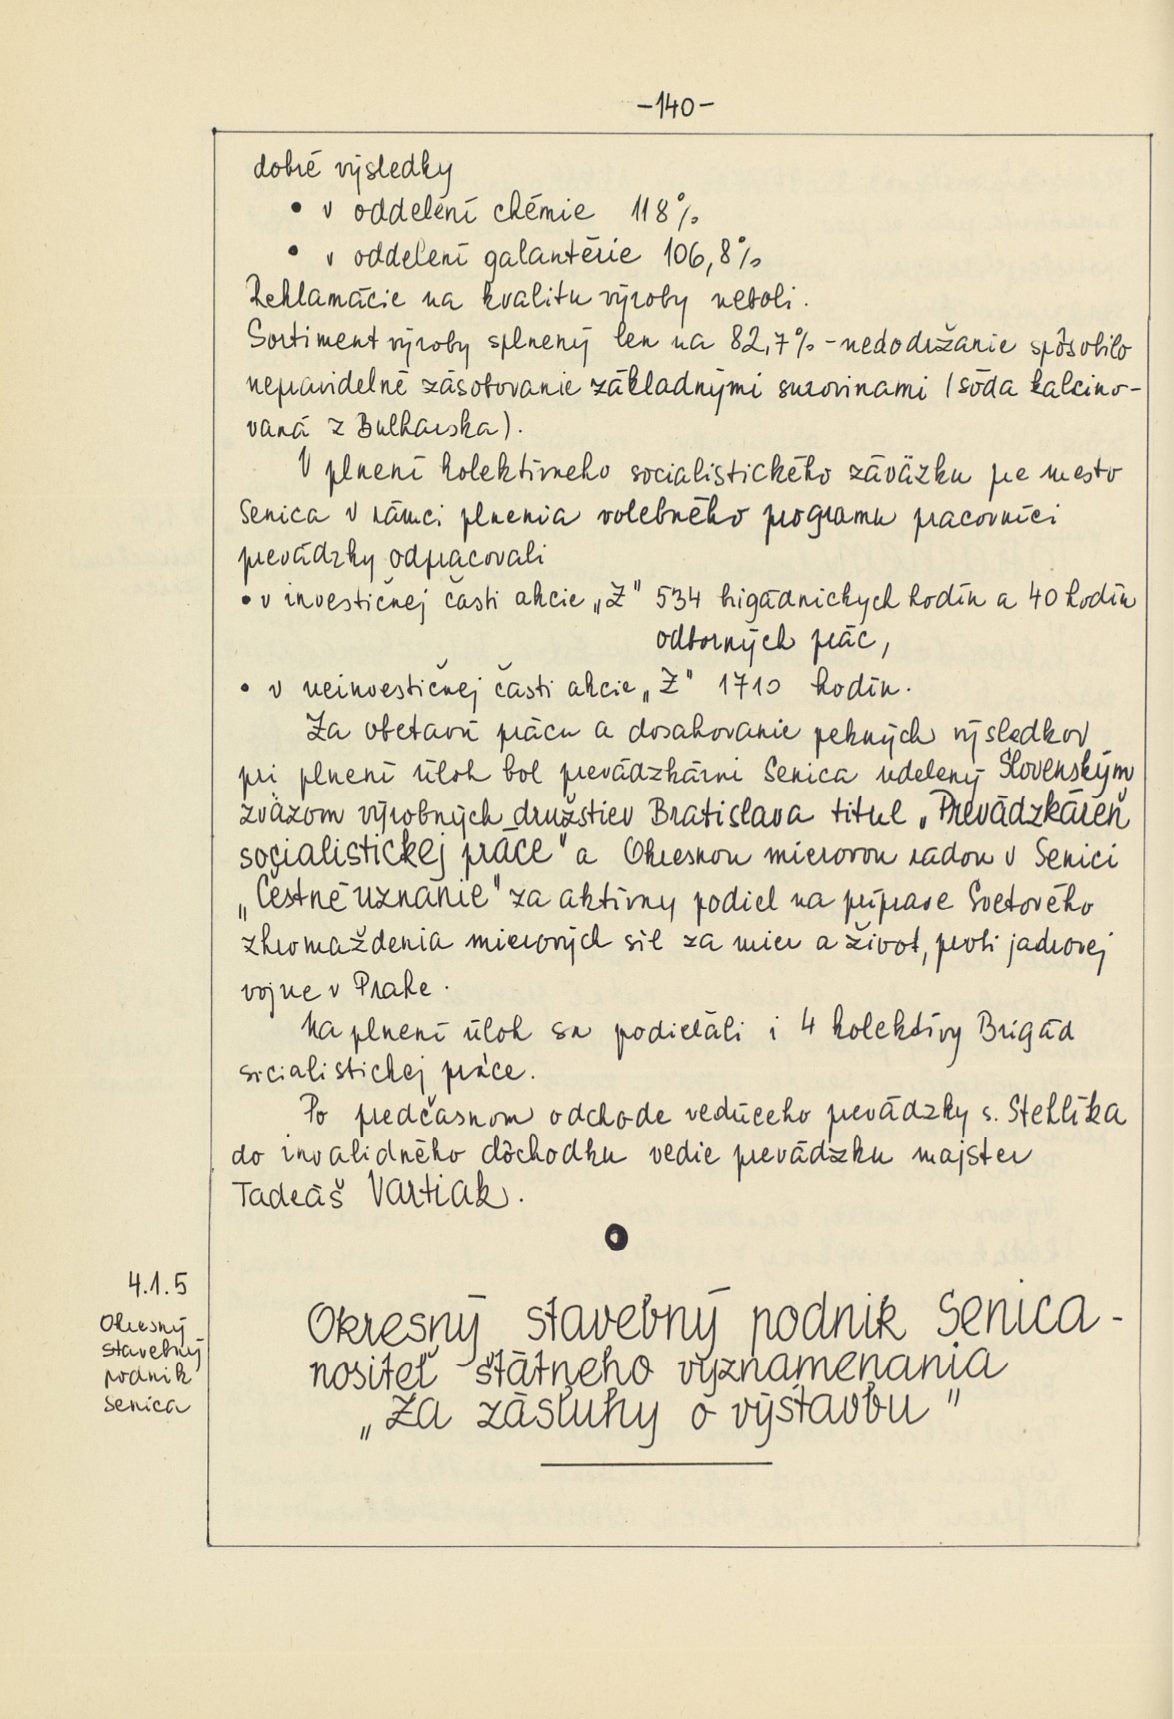 -140-
dobré výsledky
• v oddelení chémie 118%
• v oddelení galantérie 106,8%
Reklamácie na kvalitu výroby neboli.
Sortiment výroby splnený len na 82,7% - nedodržanie spôsobilo
nepravidelné zásobovanie základnými surovinami (sóda kalcino-
vaná z Bulharska).
V plnení kolektívneho socialistického záväzku pre mesto
Senica v rámci plnenia volebného programu pracovníci
prevádzky odpracovali
• v investičnej časti akcie „Z" 534 brigádnických hodín a 40 hodín
odborných prác,
• v neinvestičnej časti akcie „Z" 1710 hodín.
Za obetavú prácu a dosahovanie pekných výsledkov
pri plnení úloh bol prevádzkárni Senica udelený Slovenským
zväzom výrobných družstiev Bratislava titul „Prevádzkáreň
socialistickej práce" a Okresnou mierovou radou v Senici
„Čestné uznanie" za aktívny podiel na príprave Svetového
zhromaždenia mierových síl za mier a život, proti jadrovej
vojne v Prahe.
Na plnení úloh sa podielali i 4 kolektívy Brigád
sicialistickej práce.
Po predčasnom odchode vedúceho prevádzky s. Stehlíka
do invalidného dôchodku vedie prevádzku majster
Tadeáš Vartiak.
4.1.5
Okresný
stavebný
podnik
Senica
Okresný stavebný podnik Senica -
nositeľ štátneho vyznamenania
„Za zásluhy o výstavbu"